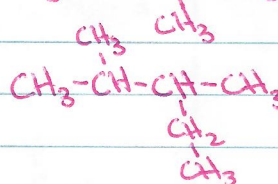 CH₃
CH₃
CH₃-CH-CH-CH₃
CH₂
CH₃